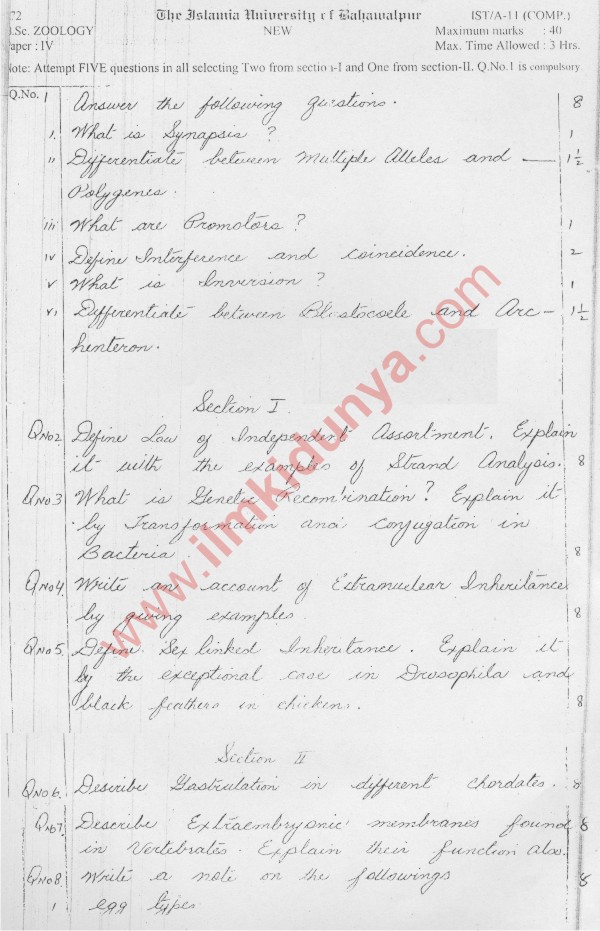 72 The Islamia University of Bahawalpur IST/A-11 (COMP.)
.Sc. ZOOLOGY NEW Maximum marks : 40
aper : IV Max. Time Allowed : 3 Hrs.
Note: Attempt FIVE questions in all selecting Two from section-I and One from section-II. Q.No.1 is compulsory
Q.No. 1 Answer the following questions. 8
i. What is Synapsis ? 1
ii Differentiate between Multiple Alleles and — 1½
Polygenes.
iii What are Promotors ? 1
iv Define Interference and coincidence. 2
v What is Inversion ? 1
vi Differentiate between Blastocoele and Arc- 1½
henteron.
Section I
Q No 2 Define Law of Independent Assortment. Explain
it with the examples of Strand Analysis. 8
Q No 3 What is Genetic Recombination ? Explain it
by Transformation and conjugation in
Bacteria. 8
Q No 4. Write an account of Extranuclear Inheritance
by giving examples 8
Q No 5. Define Sex linked Inheritance. Explain it
by the exceptional case in Drosophila and
black feathers in chickens. 8
Section II
Q No 6. Describe Gastrulation in different chordates. 8
Q No 7 Describe Extraembryonic membranes found 8
in Vertebrates. Explain their function also.
Q No 8. Write a note on the followings 8
1 egg types
www.ilmkidunya.com